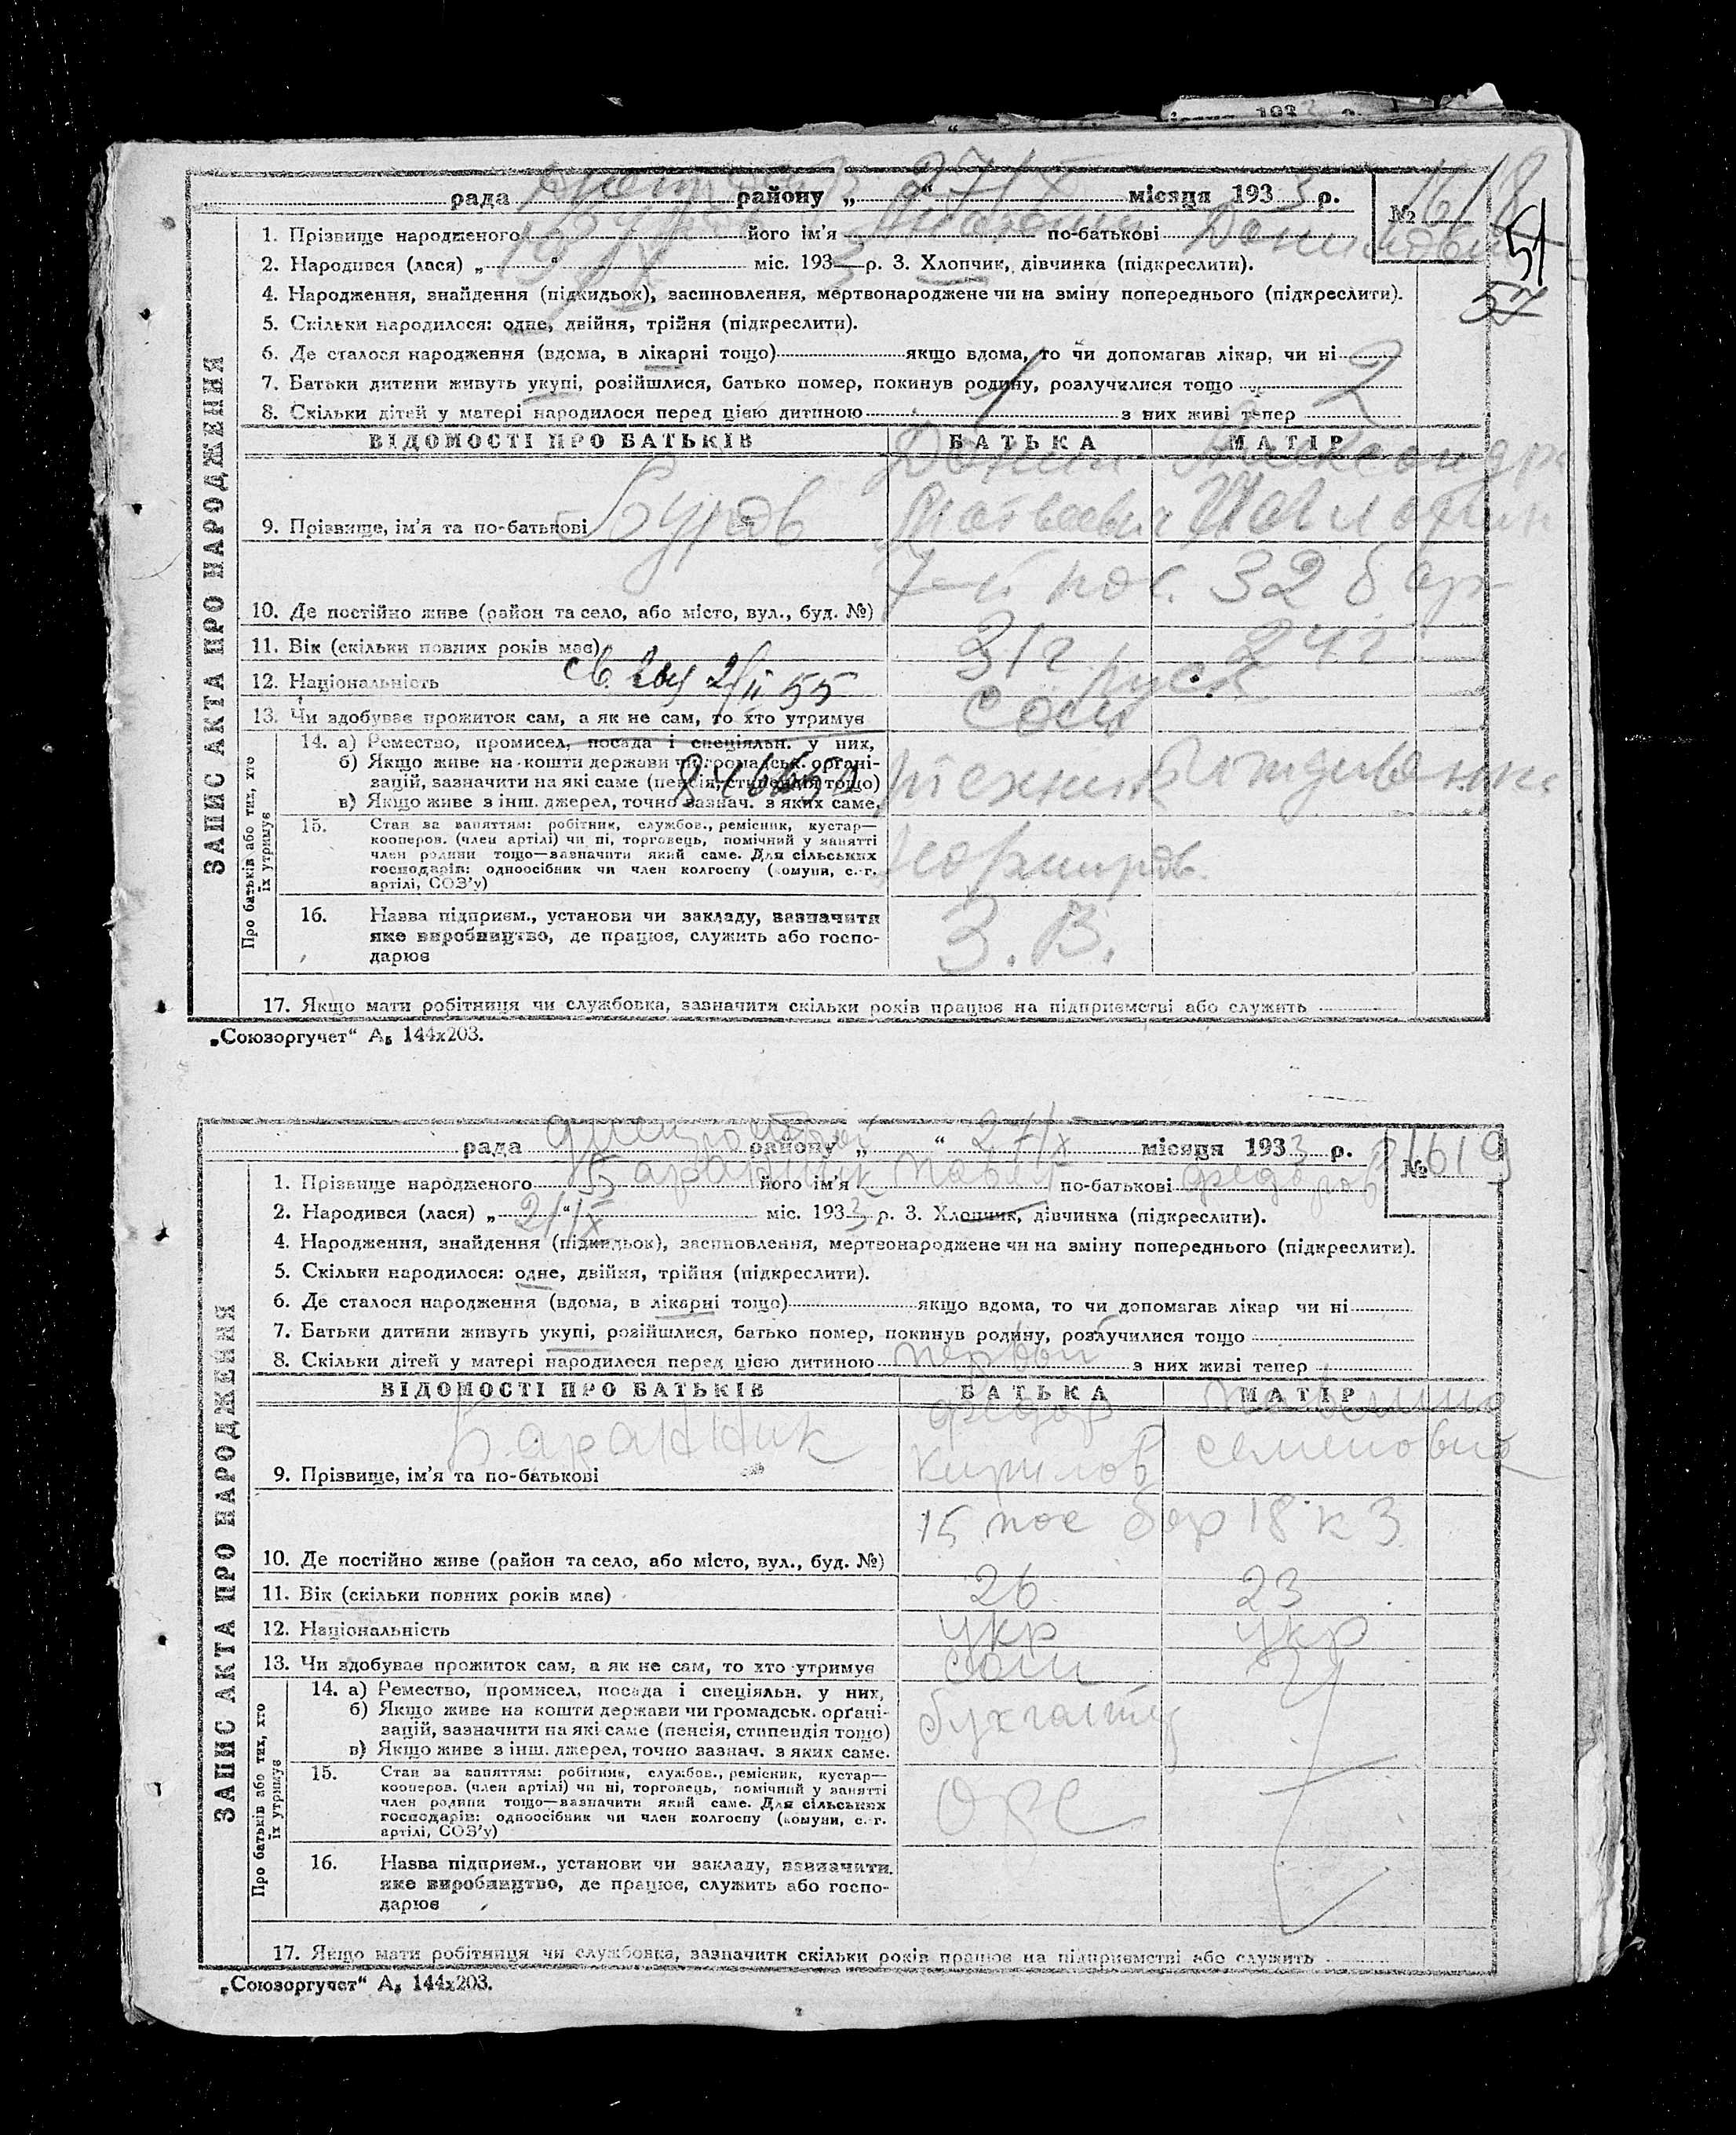 рада району „ 27/IX “ місяця 1933 р.
№ 1618
51
57
1. Прізвище народженого його ім'я по-батькові
2. Народився (лася) „ “ міс. 1933 р. 3. Хлопчик, дівчинка (підкреслити).
4. Народження, знайдення (підкидьок), засиновлення, мертвонароджене чи на зміну попереднього (підкреслити).
5. Скільки народилося: одне, двійня, трійня (підкреслити).
6. Де сталося народження (вдома, в лікарні тощо) якщо вдома, то чи допомагав лікар, чи ні
7. Батьки дитини живуть укупі, розійшлися, батько помер, покинув родину, розлучилися тощо
8. Скільки дітей у матері народилося перед цією дитиною 1 з них живі тепер 2
ЗАПИС АКТА ПРО НАРОДЖЕННЯ
ВІДОМОСТІ ПРО БАТЬКІВ БАТЬКА МАТІР
9. Прізвище, ім'я та по-батькові Буров
10. Де постійно живе (район та село, або місто, вул., буд. №) 7-й пос. 32 бар
11. Вік (скільки повних років має) 31 г 24 г
12. Національність русск
св. 2/II 55
13. Чи здобуває прожиток сам, а як не сам, то хто утримує сам
Про батьків або тих, хто
їх утримує
14. а) Ремество, промисел, посада і спеціяльн. у них,
б) Якщо живе на кошти держави чи громадськ. органі-
зацій, зазначити на які саме (пенсія, стипендія тощо)
в) Якщо живе з інш. джерел, точно зазнач. з яких саме.
техник иждивенка
15. Стан за заняттям: робітник, службов., ремісник, кустар—
кооперов. (член артілі) чи ні, торговець, помічний у занятті
член родини тощо—зазначити який саме. Для сільських
господарів: одноосібник чи член колгоспу (комуни, с.-г.
артілі, СОЗ'у)
16. Назва підприєм., установи чи закладу, зазначити
яке виробництво, де працює, служить або госпо-
дарює
З. В.
17. Якщо мати робітниця чи службовка, зазначити скільки років працює на підприємстві або служить
„Союзоргучет“ А₅ 144х203.
рада району „ “ 27/IX місяця 1933 р.
№ 1619
1. Прізвище народженого Баранник його ім'я по-батькові Федоров
2. Народився (лася) „ 21/IX “ міс. 1933 р. 3. Хлопчик, дівчинка (підкреслити).
4. Народження, знайдення (підкидьок), засиновлення, мертвонароджене чи на зміну попереднього (підкреслити).
5. Скільки народилося: одне, двійня, трійня (підкреслити).
6. Де сталося народження (вдома, в лікарні тощо) якщо вдома, то чи допомагав лікар чи ні
7. Батьки дитини живуть укупі, розійшлися, батько помер, покинув родину, розлучилися тощо
8. Скільки дітей у матері народилося перед цією дитиною первый з них живі тепер
ЗАПИС АКТА ПРО НАРОДЖЕННЯ
ВІДОМОСТІ ПРО БАТЬКІВ БАТЬКА МАТІР
Федор
9. Прізвище, ім'я та по-батькові Баранник Кирилов семеновна
10. Де постійно живе (район та село, або місто, вул., буд. №) 15 пос бар 18 к 3
11. Вік (скільки повних років має) 26 23
12. Національність укр укр
13. Чи здобуває прожиток сам, а як не сам, то хто утримує сам
Про батьків або тих, хто
їх утримує
14. а) Ремество, промисел, посада і спеціяльн. у них,
б) Якщо живе на кошти держави чи громадськ. орґані-
зацій, зазначити на які саме (пенсія, стипендія тощо)
в) Якщо живе з інш. джерел, точно зазнач. з яких саме.
15. Стан за заняттям: робітник, службов., ремісник, кустар—
кооперов. (член артілі) чи ні, торговець, помічний у занятті
член родини тощо—зазначити який саме. Для сільських
господарів: одноосібник чи член колгоспу (комуни, с.-г.
артілі, СОЗ'у)
ОРС
16. Назва підприєм., установи чи закладу, зазначити
яке виробництво, де працює, служить або госпо-
дарює
17. Якщо мати робітниця чи службовка, зазначити скільки років працює на підприємстві або служить
„Союзоргучет“ А₅ 144х203.